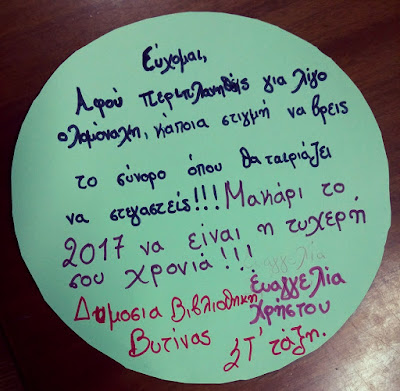 Εύχομαι,
Αφού περιπλανηθείς για λίγο
ολομόναχη, κάποια στιγμή να βρεις
το σύνορο όπου θα ταιριάζει
να στεγαστείς!!! Μακάρι το
2017 να είναι η τυχερή
σου χρονιά!!!
Ευαγγελία
Δημοσια Βιβλιοθηκη Χρήστου
Βυτινας ΣΤ' τάξη.